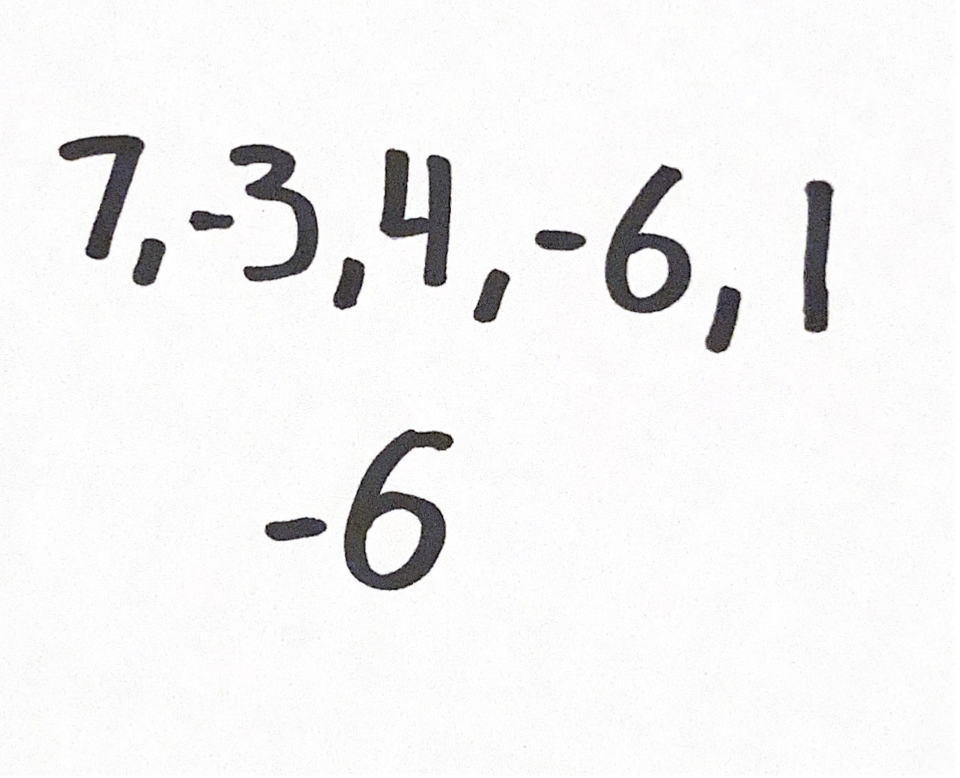 7,-3,4,-6,1
-6